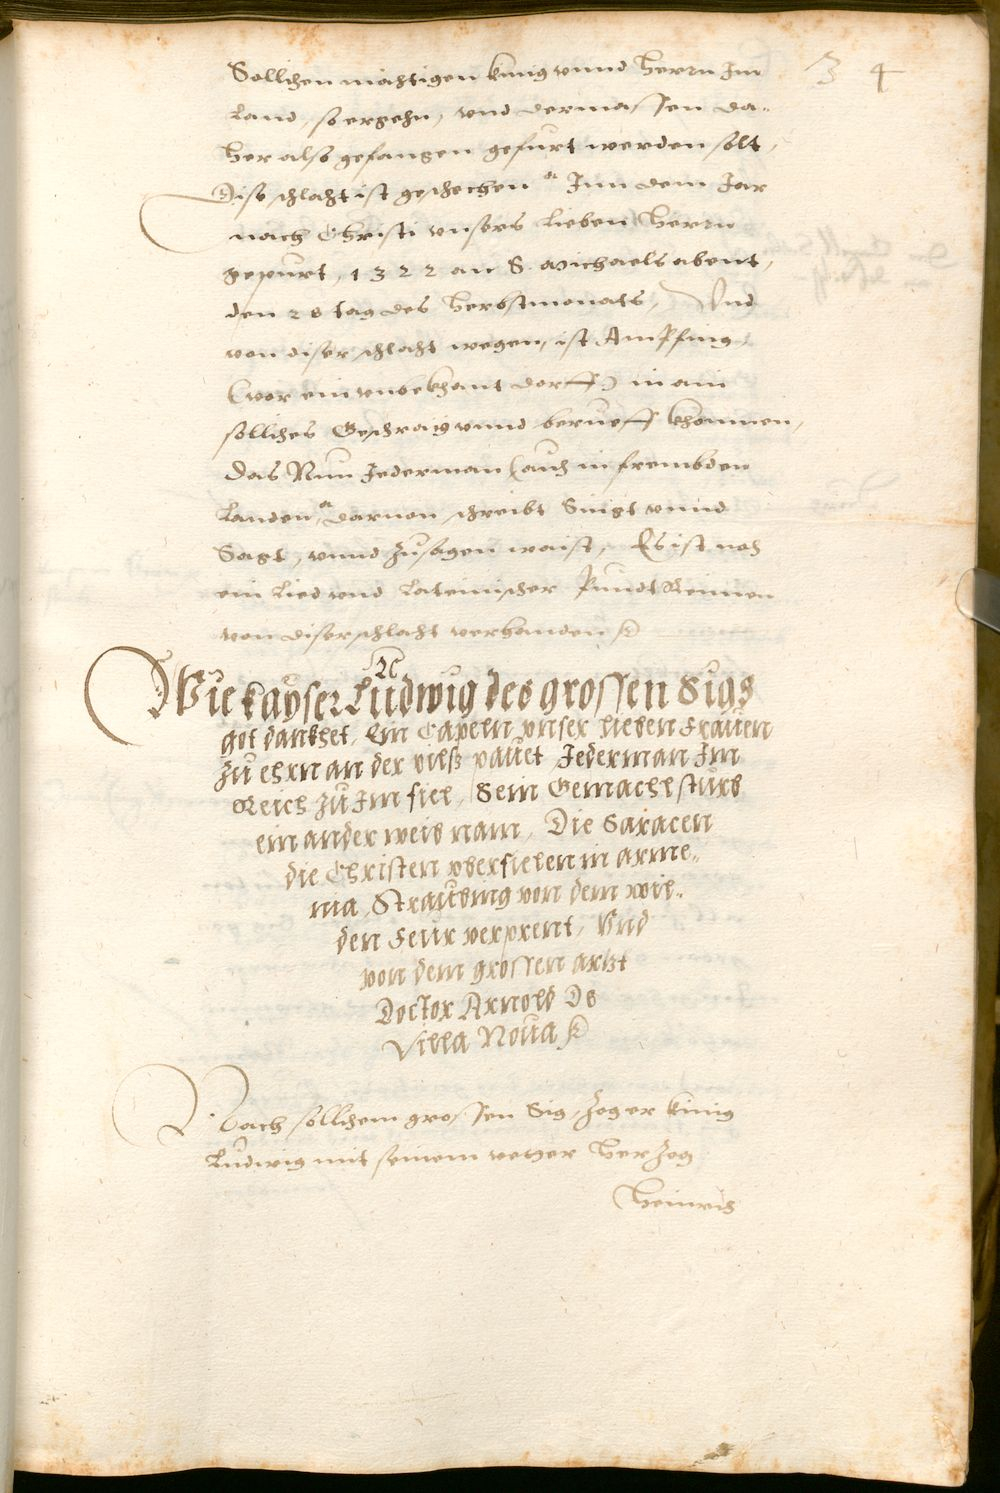 34
Sollichen mächtigen künig vnnd Herrn Im
Land, so ergehn, vnd dermassen da-
her also gefangen gefurt werden solt,
Dise schlaht ist geschechen Inn dem Jar
nach Christi vnsers lieben Herrn
gepurt, 1322 an S. Michaels abent,
den 28 tag des Herbstmonats, Vnd
von diser schlaht wegen, ist Ampfing,
(vor ein vnbekhant dorff) in ain
solliches Geschraig vnnd berueff khommen,
das Nun Jederman (auch in frembden
Landen, darvon schreibt Singt vnnd
Sagt, vnnd zusagen waist, Es ist noch
ein Lied vnd Lateinischer Pundt Reimen
von diser schlaht verhanden
Wie kayser Ludwig des grossen Sigs
got dankhet, Ein Capeln vnser lieben Frauen
zu ehrn an der vilß pauet Jederman Im
Reich zu Im fiel, Sein Gemachl sturb
ein ander weib nam, Die Saracen
die Christen vberfielen in arme-
nia, Straubing von dem wil-
den Feur verprent, Vnd
von dem grossen artzt
Doctor Arnold De
Villa Noua
Nach sollichem grossen Sig, zog er künig
Ludwig mit seinem vetter Herzog
Heinrich